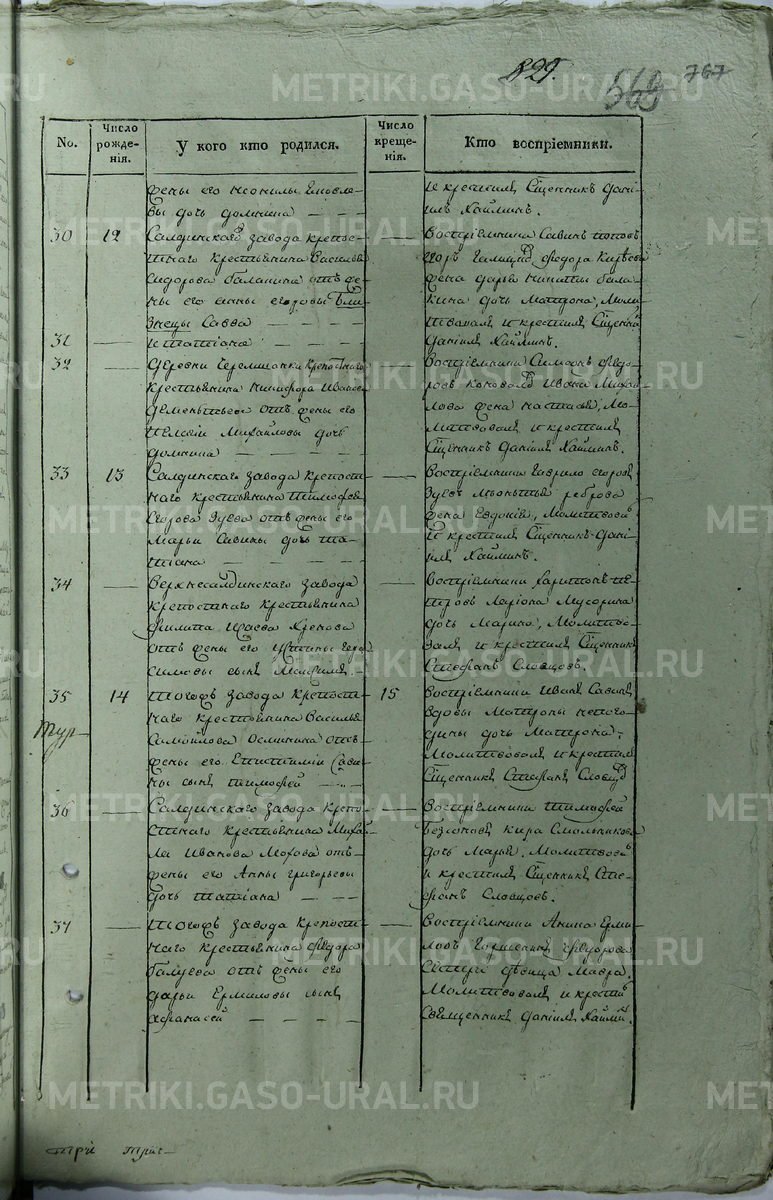 829.
569 767
No.
Число рожде-нія.
У кого кто родился.
Число креще-нія.
Кто воспріемники.
жены его Неонилы
вы дочь Домнина
и крестилъ Сщенникъ Дані-
илъ Хайминъ.
30 12 Салдинскаго завода крепос-
тнаго крестьянина Василья
Сидорова Баланина отъ же-
ны его Анны Егоровы бли-
знецы Савва
31 и Татіана
Воспріемники Савинъ Поповъ
Егоръ Ѳедора
жена Дарья Никиты Бала-
кина дочь Матрона, моли-
твовалъ и крестилъ Сщенни
Даніилъ Хайминъ.
32 Деревни Черемшанки крепостнаго
крестьянина Никифора Иванова
Дементьева отъ жены его
Михайловы дочь
Домнина
Воспріемники Симонъ Ѳедо-
ровъ Ивана Михай-
лова жена Настасья, мо-
литвовалъ и крестилъ
Сщенникъ Даніилъ Хайминъ.
33 13 Салдинскаго завода крепост-
наго крестьянина Тимофея
Егорова Зуева отъ жены его
Марьи Савины дочь Та-
тіана
Воспріемники Гаврило Егоровъ
Зуевъ Реброва
жена Евдокія, молитвовалъ
и крестилъ Сщенникъ Дані-
илъ Хайминъ.
34 Верхнесалдинскаго завода
крепостнаго крестьянина
Филипа Исаева
отъ жены его Устины Гера-
симовы сынъ
Воспріемники Харитонъ Пе-
тровъ Ларіона Мусорина
дочь Марина, молитво-
валъ и крестилъ Сщенникъ
Стефанъ Словцовъ.
35 14 Тогожъ завода крепост-
наго крестьянина Василья
Самойлова Осминина отъ
жены его Епистиміи Сави-
ны сынъ Тимофей
Тур
15 Воспріемники Иванъ Савинъ
вдовы Матроны
дочь Матрона,
молитвовалъ и крестилъ
Сщенникъ Стефанъ Словцовъ
36 Салдинскаго завода крепо-
стнаго крестьянина Миха-
ла Иванова Мохова отъ
жены его Анны Григорьевы
дочь Татіана
Воспріемники Тимофей
Безсоновъ Кира Смольникова
дочь Марья. Молитвовалъ
и крестилъ Сщенникъ Сте-
фанъ Словцовъ.
37 Тогожъ завода крепост-
наго крестьянина Ѳедора
Балуева отъ жены его
Дарьи Ермиловы сынъ
Афанасей
Воспріемники Анина Ерми-
ловъ Ѳедорова
сестра девица Мавра.
Молитвовалъ и крестилъ
Священникъ Даніилъ Хайминъ.
METRIKI.GASO-URAL.RU